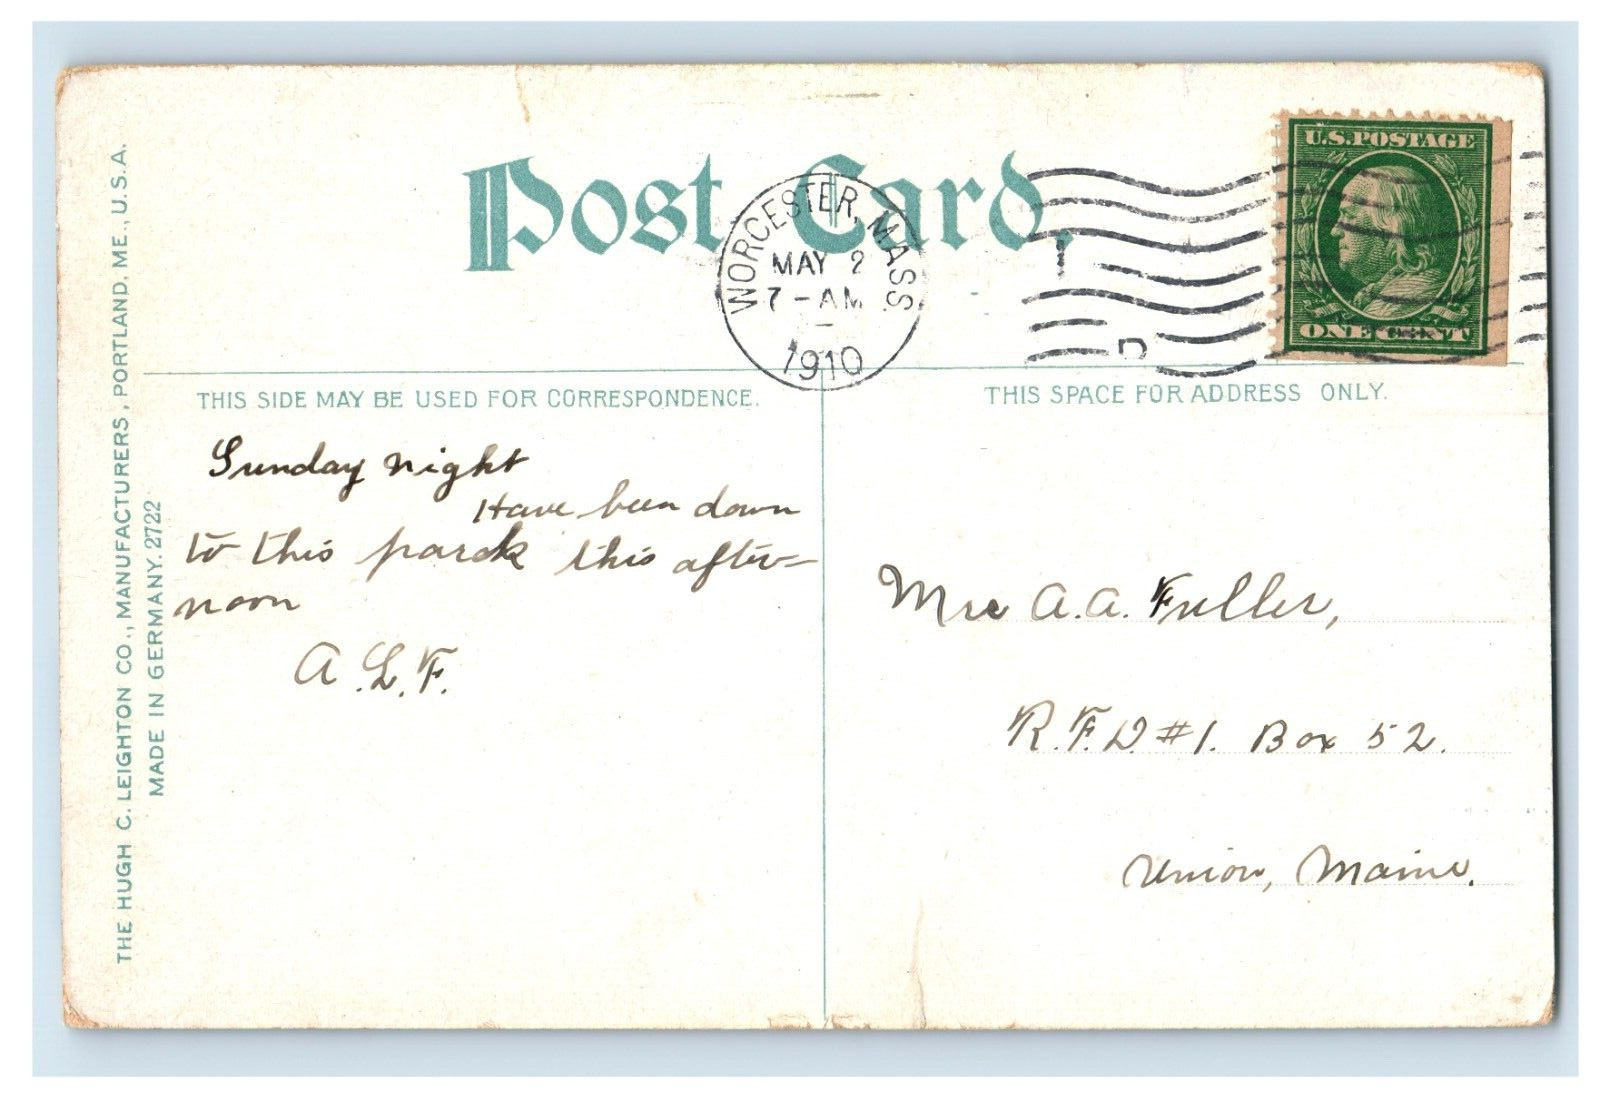 Post Card.
WORCESTER, MASS.
MAY 2
7-AM
1910
U.S. POSTAGE
ONE CENT
THIS SIDE MAY BE USED FOR CORRESPONDENCE.
THIS SPACE FOR ADDRESS ONLY.
THE HUGH C. LEIGHTON CO., MANUFACTURERS, PORTLAND, ME., U.S.A.
MADE IN GERMANY. 2722
Sunday night
Have been down
to this park this after-
noon
A.L.F.
Mrs A.A. Fuller,
R.F.D #1. Box 52.
Union, Maine.